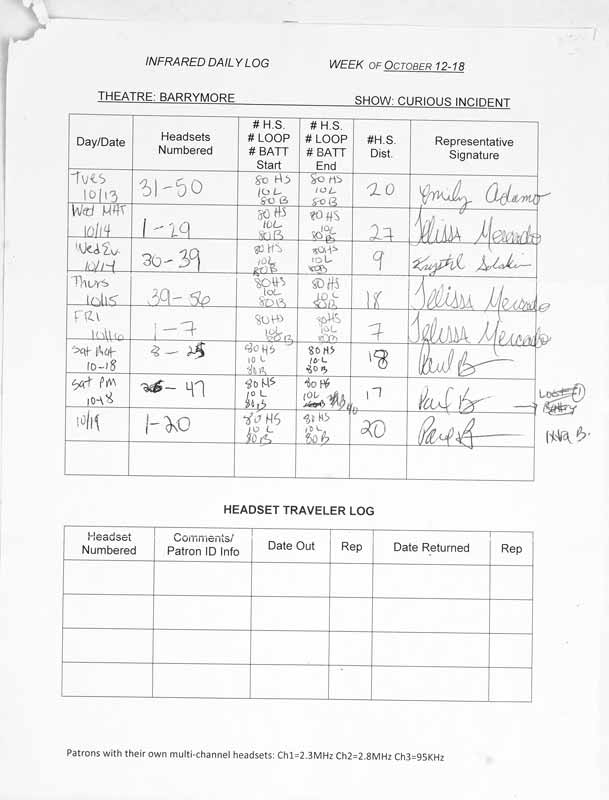 INFRARED DAILY LOG WEEK OF OCTOBER 12-18
THEATRE: BARRYMORE SHOW: CURIOUS INCIDENT
Day/Date Headsets Numbered # H.S. # LOOP # BATT Start # H.S. # LOOP # BATT End #H.S. Dist. Representative Signature
Tues 10/13 31-50 80 HS 10 L 80 B 80 HS 10 L 80 B 20 Emily Adamo
Wed MAT 10/14 1-29 80 HS 10L 80B 80HS 10L 80B 27 Jelissa Mercado
Wed Ev. 10/14 30-39 80 HS 10L 80B 80HS 10L 80B 9 Krystal
Thurs 10/15 39-56 80HS 10L 80B 80HS 10L 80B 18 Jelissa Mercado
FRI 10/16 1-7 80HS 10L 80B 80HS 10L 80B 7 Jelissa Mercado
Sat Mat 10-18 8-25 80 HS 10 L 80B 80 HS 10 L 80B 18 Paul B
Sat PM 10-18 - 47 80 HS 10 L 80 B 80 HS 10L 17 Paul B Lost 1 Battery
10/19 1-20 80 HS 10 L 80 B 80 HS 10L 80 B 20 Paul B Extra B.
HEADSET TRAVELER LOG
Headset Numbered Comments/ Patron ID Info Date Out Rep Date Returned Rep
Patrons with their own multi-channel headsets: Ch1=2.3MHz Ch2=2.8MHz Ch3=95KHz